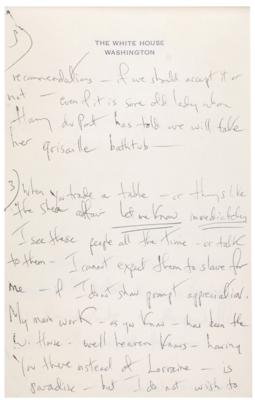 3)
THE WHITE HOUSE
WASHINGTON
recommendations — if we should accept it or
not — even if it is some old lady whom
Harry du Pont has told we will take
her grisaille bathtub —
3) When you trade a table — or things like
the affair let me know immediately
I see these people all the time — or talk
to them — I cannot expect them to slave for
me — if I don't show prompt appreciation.
My main work — as you know — has been the
W. House — well heaven knows — having
you there instead of Lorraine — is
paradise — but I do not wish to